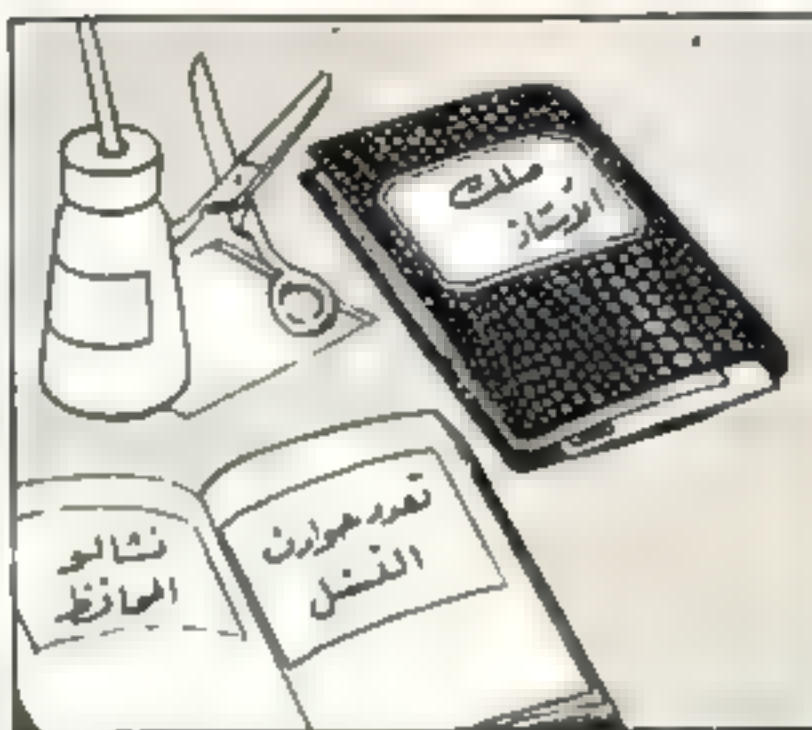 ملك
الأستاذ
تعدد حوادث
القتل
نشالو
المحافظ